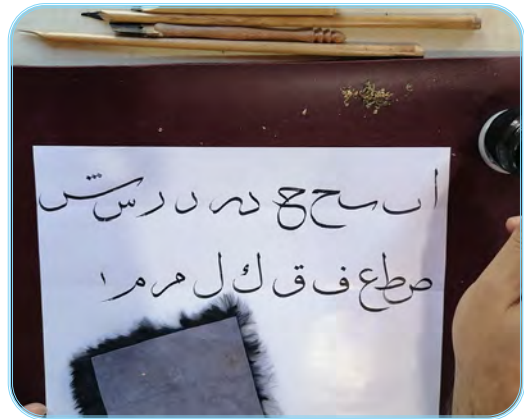 ا ٮ ح ح در د ر س ش
ص ط ع ف ق ك ل م م ١